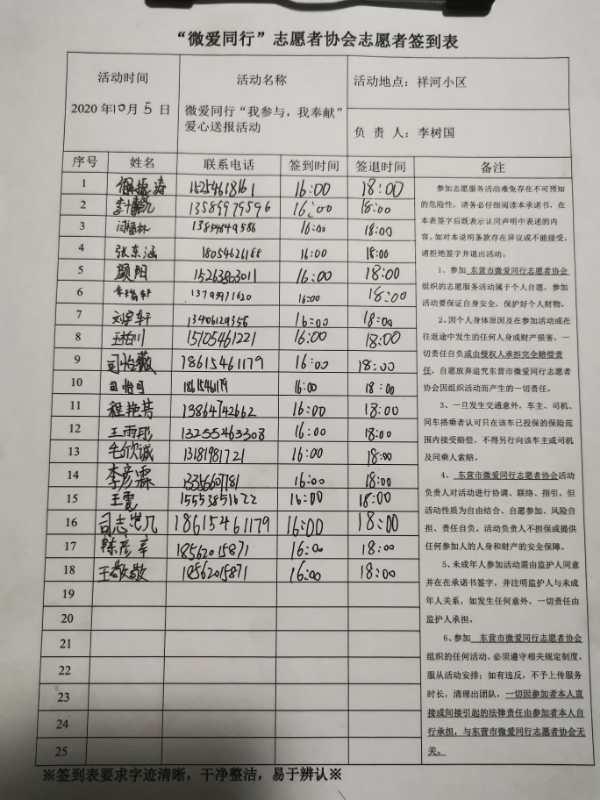 “微爱同行”志愿者协会志愿者签到表
活动时间 活动名称 活动地点：祥河小区
2020年10月5日 微爱同行“我参与，我奉献”
爱心送报活动
负 责 人：李树国
序号 姓名 联系电话 签到时间 签退时间 备注
1 16:00 18:00
2 13589979596 16:00 18:00
3 16:00 18:00
4 张东涵 16:00 18:00
5 顾阳 15263863011 16:00 18:00
6 16:00 18:00
7 16:00 18:00
8 15705461221 16:00 18:00
9 18615461179 16:00 18:00
10 16:00 18:00
11 程艳芳 13864742662 16:00 18:00
12 王雨 13255463308 16:00 18:00
13 毛欣诚 13181981721 16:00 18:00
14 李彦霖 16:00 18:00
15 王霞 16:00 18:00
16 18615461179 16:00 18:00
17 陈彦 18562015871 16:00 18:00
18 王敬敬 18562015871 16:00 18:00
19
20
21
22
23
24
25
参加志愿服务活动难免存在不可预知
的危险性，请务必仔细阅读本承诺书，在
本表签字后既表示认同声明中表述的内
容，如对本说明条款存在异议或不能接受，
请拒绝签字并退出活动。
1、参加 东营市微爱同行志愿者协会
组织的志愿服务活动属于个人自愿，参加
活动要保证自身安全，保护好个人财物。
2、因个人身体原因及在参加活动或在
往返途中发生的任何人身或财产损害，一
切责任自负或由侵权人承担完全赔偿责
任，自愿放弃追究东营市微爱同行志愿者
协会因组织活动而产生的一切责任。
3、一旦发生交通意外，车主、司机、
同车搭乘者认可只在该车已投保的保险范
围内接受赔偿，不得另行向该车主或司机
及同乘人索赔。
4、东营市微爱同行志愿者协会活动
负责人对活动进行协调、联络、指引，但
活动性质为自由结合、自愿参加、风险自
担、责任自负。活动负责人不担保或提供
任何参加人的人身和财产的安全保障。
5、未成年人参加活动需由监护人同意
并在在承诺书签字，并注明监护人与未成
年人关系，如发生任何意外，一切责任由
监护人承担。
6、参加 东营市微爱同行志愿者协会
组织的任何活动，必须遵守相关规定制度，
服从活动安排；如有违反，不予上传服务
时长，清理出团队，一切因参加者本人直
接或间接引起的法律责任由参加者本人自
行承担，与东营市微爱同行志愿者协会无
关。
※签到表要求字迹清晰，干净整洁，易于辨认※